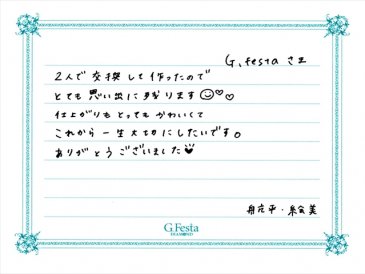 G.festa さま
2人で交換して作ったので
とても思い出に残ります
仕上がりもとってもかわいくて
これから一生大切にしたいです。
ありがとうございました
平・ 美
G.Festa
DIAMOND